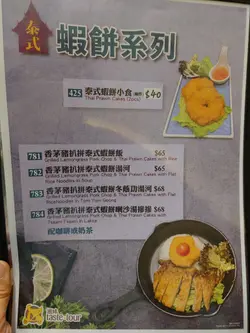 泰式
蝦餅系列
425 泰式蝦餅小食 $40
Thai Prawn Cakes (2pcs)
781 香茅豬扒拼泰式蝦餅飯 $65
Grilled Lemongrass Pork Chop & Thai Prawn Cakes with Rice
782 香茅豬扒拼泰式蝦餅湯河 $65
Grilled Lemongrass Pork Chop & Thai Prawn Cakes with Flat
Rice Noodles in Soup
783 香茅豬扒拼泰式蝦餅冬蔭湯河 $68
Grilled Lemongrass Pork Chop & Thai Prawn Cakes with Flat
in Tom Yum Goong
784 香茅豬扒拼泰式蝦餅喇沙湯 $68
Grilled Lemongrass Pork Chop & Thai Prawn Cakes with
in Laksa
配咖啡或奶茶